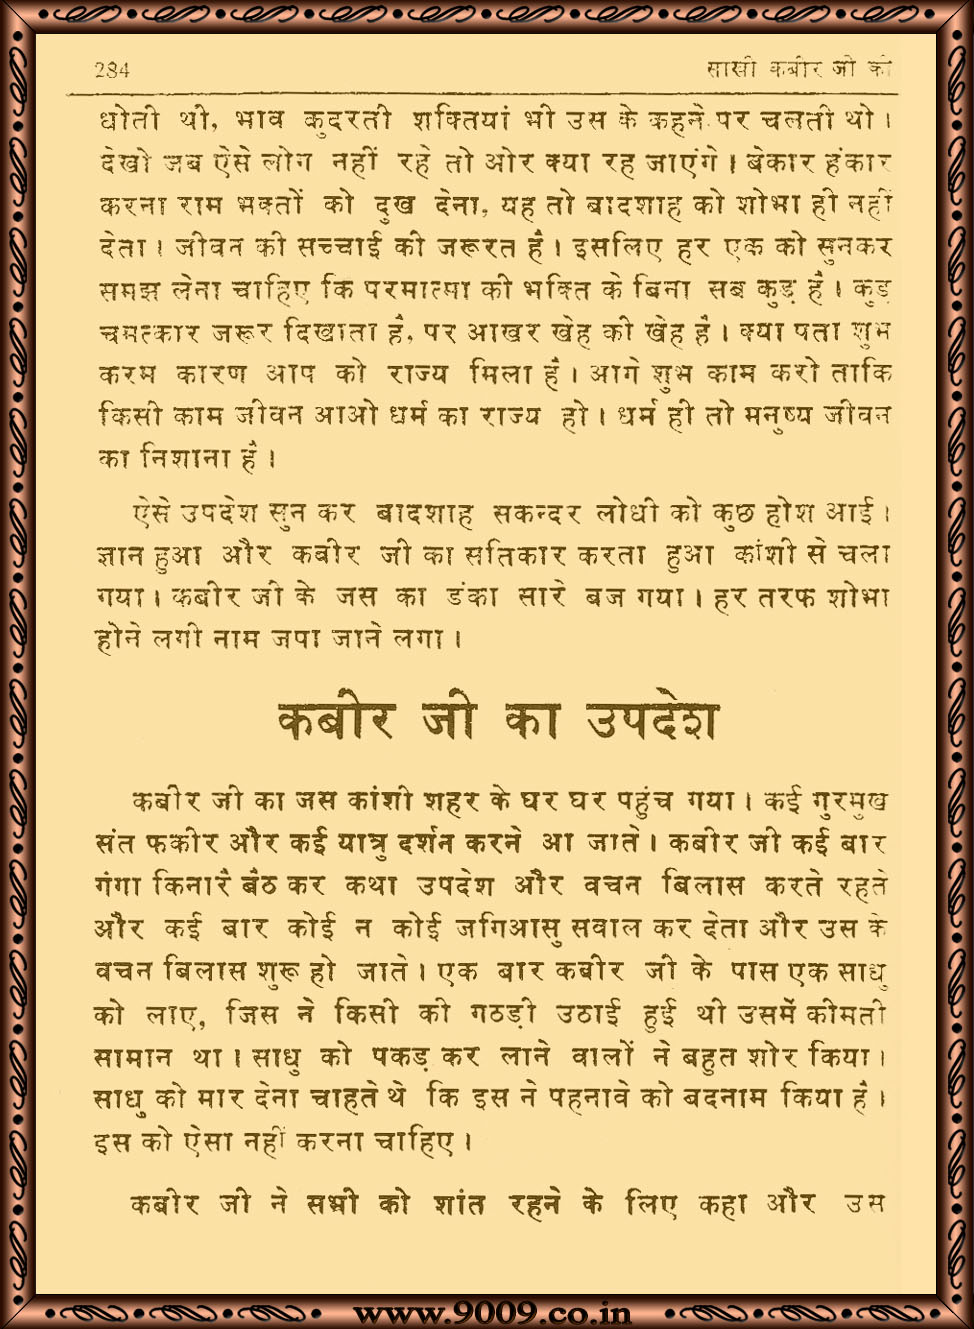 284 साखी कबीर जी की
धोती थी, भाव कुदरती शक्तियां भी उस के कहने पर चलती थी।
देखो जब ऐसे लोग नहीं रहे तो ओर क्या रह जाएंगे। बेकार हंकार
करना राम भक्तों को दुख देना, यह तो बादशाह को शोभा ही नहीं
देता। जीवन की सच्चाई की जरूरत है। इसलिए हर एक को सुनकर
समझ लेना चाहिए कि परमात्मा की भक्ति के बिना सब कुड़ है। कुड़
चमत्कार जरूर दिखाता है, पर आखर खेह की खेह है। क्या पता शुभ
करम कारण आप को राज्य मिला है। आगे शुभ काम करो ताकि
किसी काम जीवन आओ धर्म का राज्य हो। धर्म ही तो मनुष्य जीवन
का निशाना है।
ऐसे उपदेश सुन कर बादशाह सकन्दर लोधी को कुछ होश आई।
ज्ञान हुआ और कबीर जी का सतिकार करता हुआ कांशी से चला
गया। कबीर जी के जस का डंका सारे बज गया। हर तरफ शोभा
होने लगी नाम जपा जाने लगा।
कबीर जी का उपदेश
कबीर जी का जस कांशी शहर के घर घर पहुंच गया। कई गुरमुख
संत फकीर और कई यात्रु दर्शन करने आ जाते। कबीर जी कई बार
गंगा किनारै बैठ कर कथा उपदेश और वचन बिलास करते रहते
और कई बार कोई न कोई जगिआसु सवाल कर देता और उस के
वचन बिलास शुरू हो जाते। एक बार कबीर जी के पास एक साधु
को लाए, जिस ने किसी की गठड़ी उठाई हुई थी उसमें कीमती
सामान था। साधु को पकड़ कर लाने वालों ने बहुत शोर किया।
साधु को मार देना चाहते थे कि इस ने पहनावे को बदनाम किया है।
इस को ऐसा नहीं करना चाहिए।
कबीर जी ने सभी को शांत रहने के लिए कहा और उस
www.9009.co.in